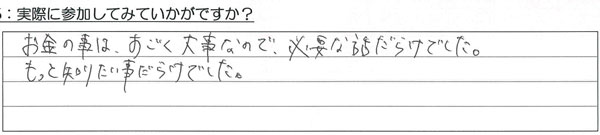 ：実際に参加してみていかがですか？
お金の事は、すごく大事なので、必要な話だらけでした。
もっと知りたい事だらけでした。